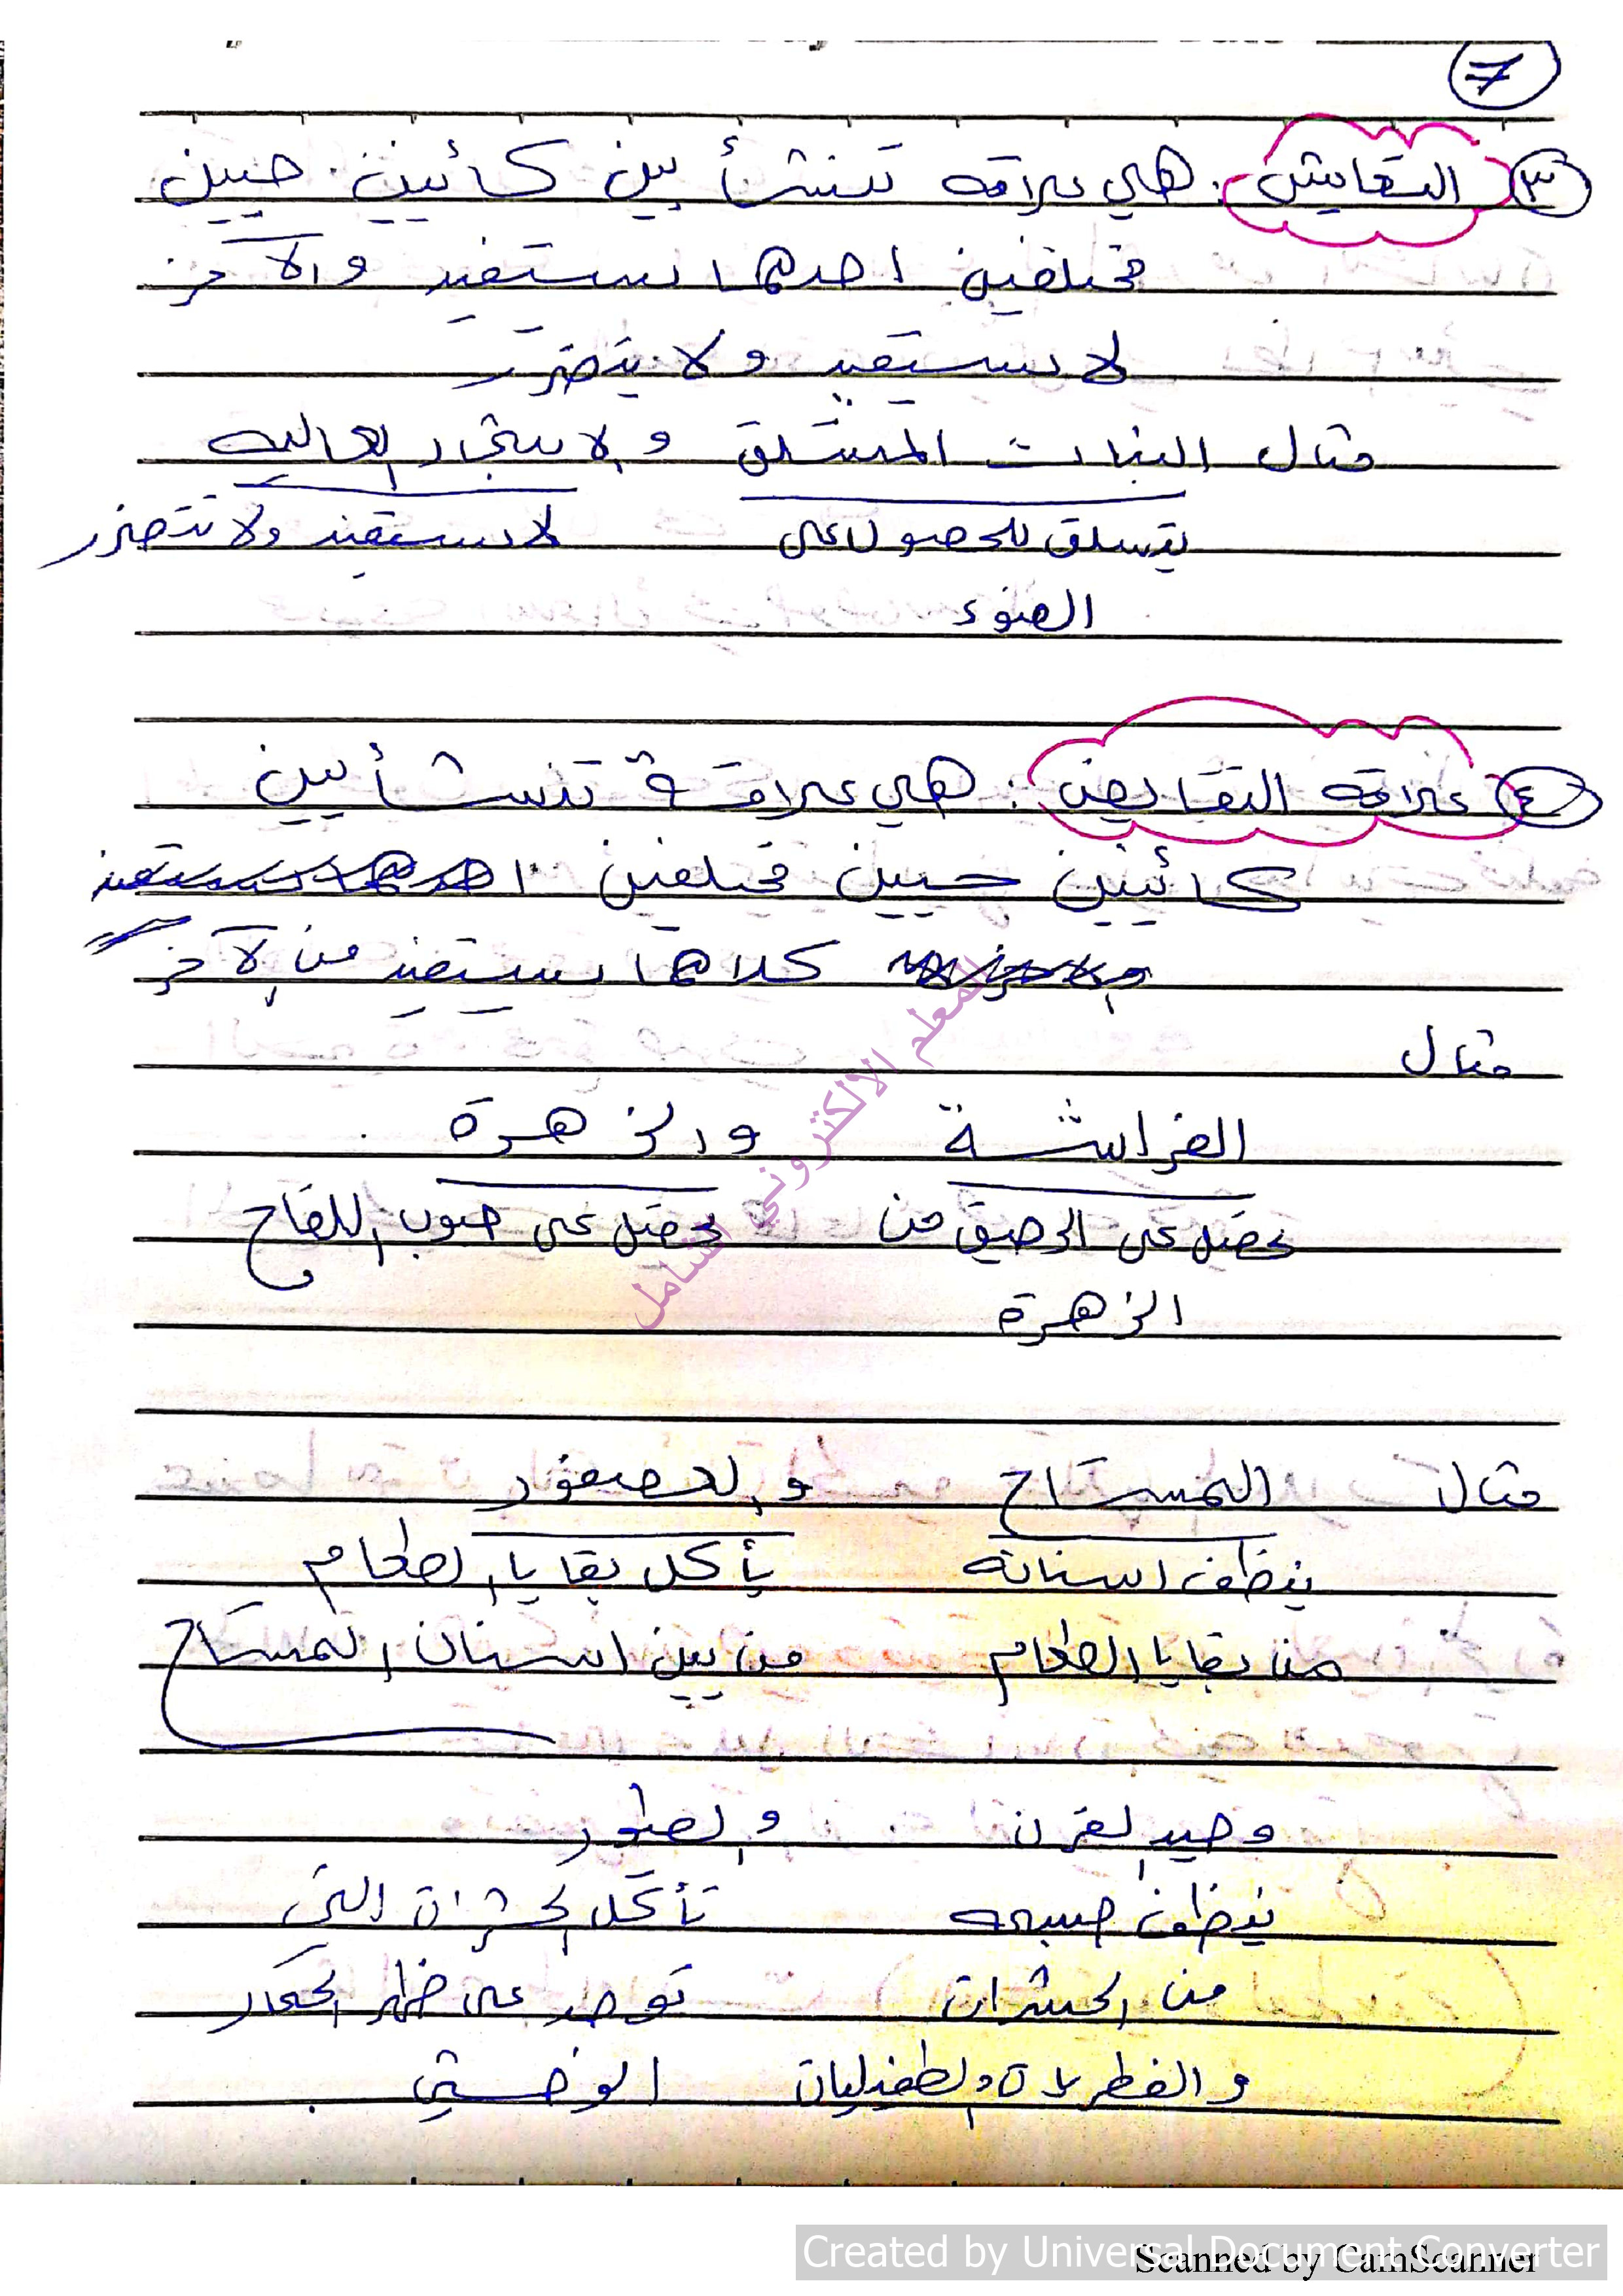 7
٣ التعايش : هي علاقه تنشأ بين كائنين حيين
مختلفين احدهما يستفيد والآخر
لا يستفيد ولا يتضرر
مثال النبات المتسلق والاشجار العاليه
يتسلق للحصول على لا يستفيد ولا تتضرر
الضوء
٤ علاقه التقايض : هي علاقة تنشأ بين
كائنين حيين مختلفين احدهما يستفيد
كلاهما يستفيد من الآخر
مثال
الفراشة والزهرة
يحصل على الرحيق من يحصل على حبوب اللقاح
الزهرة
مثال التمساح والعصفور
ينظف اسنانه يأكل بقايا الطعام
من بقايا الطعام من بين اسنان التمساح
وحيد القرن والطيور
ينظف جسمه تأكل الحشرات التي
من الحشرات توجد على ظهر الحمار
والفطريات والطفيليات الوحشي
المعلم الالكتروني الشامل
Created by Universal Document Converter
Scanned by CamScanner